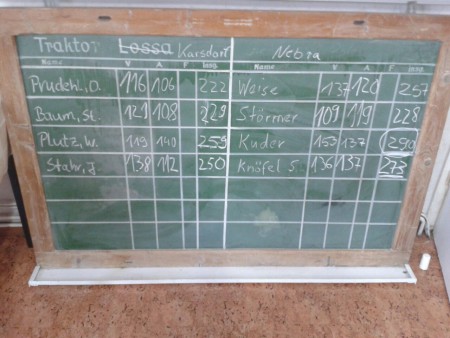 Traktor Lossa Karsdorf Nebra
Name V A F Insg. Name V A F Insg.
Prudehl, O. 116 106 222 Weise 137 120 257
Baum, St. 121 108 229 Störmer 109 119 228
Plutz, W. 119 140 259 Kuder 153 137 290
Stahr, J. 138 112 250 Knöfel S. 136 137 273